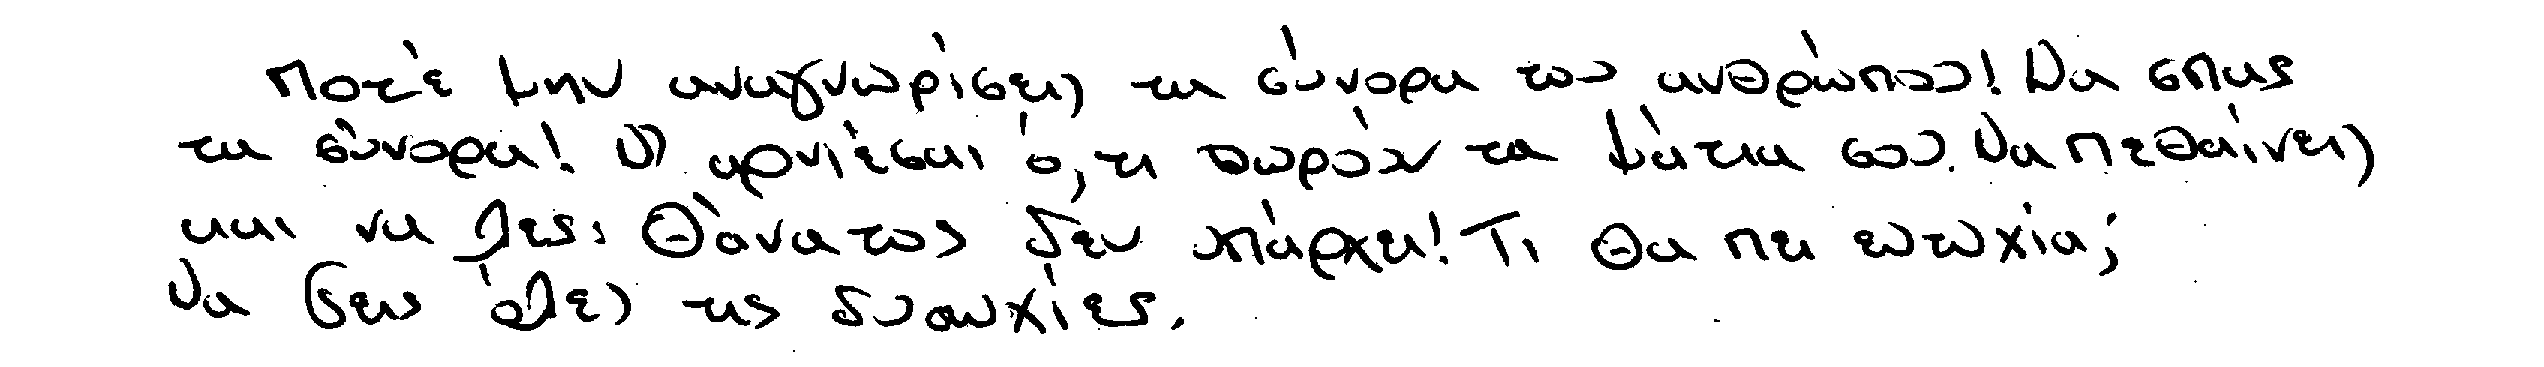 Ποτέ μην αναγνωρίσεις τα σύνορα του ανθρώπου! Να σπας
τα σύνορα! Ν' αρνιέσαι ό,τι θωρούν τα μάτια σου. Να πεθαίνεις
και να λες: Θάνατος δεν υπάρχει! Τι θα πει ευτυχία;
Να ζεις όλες τις δυστυχίες.